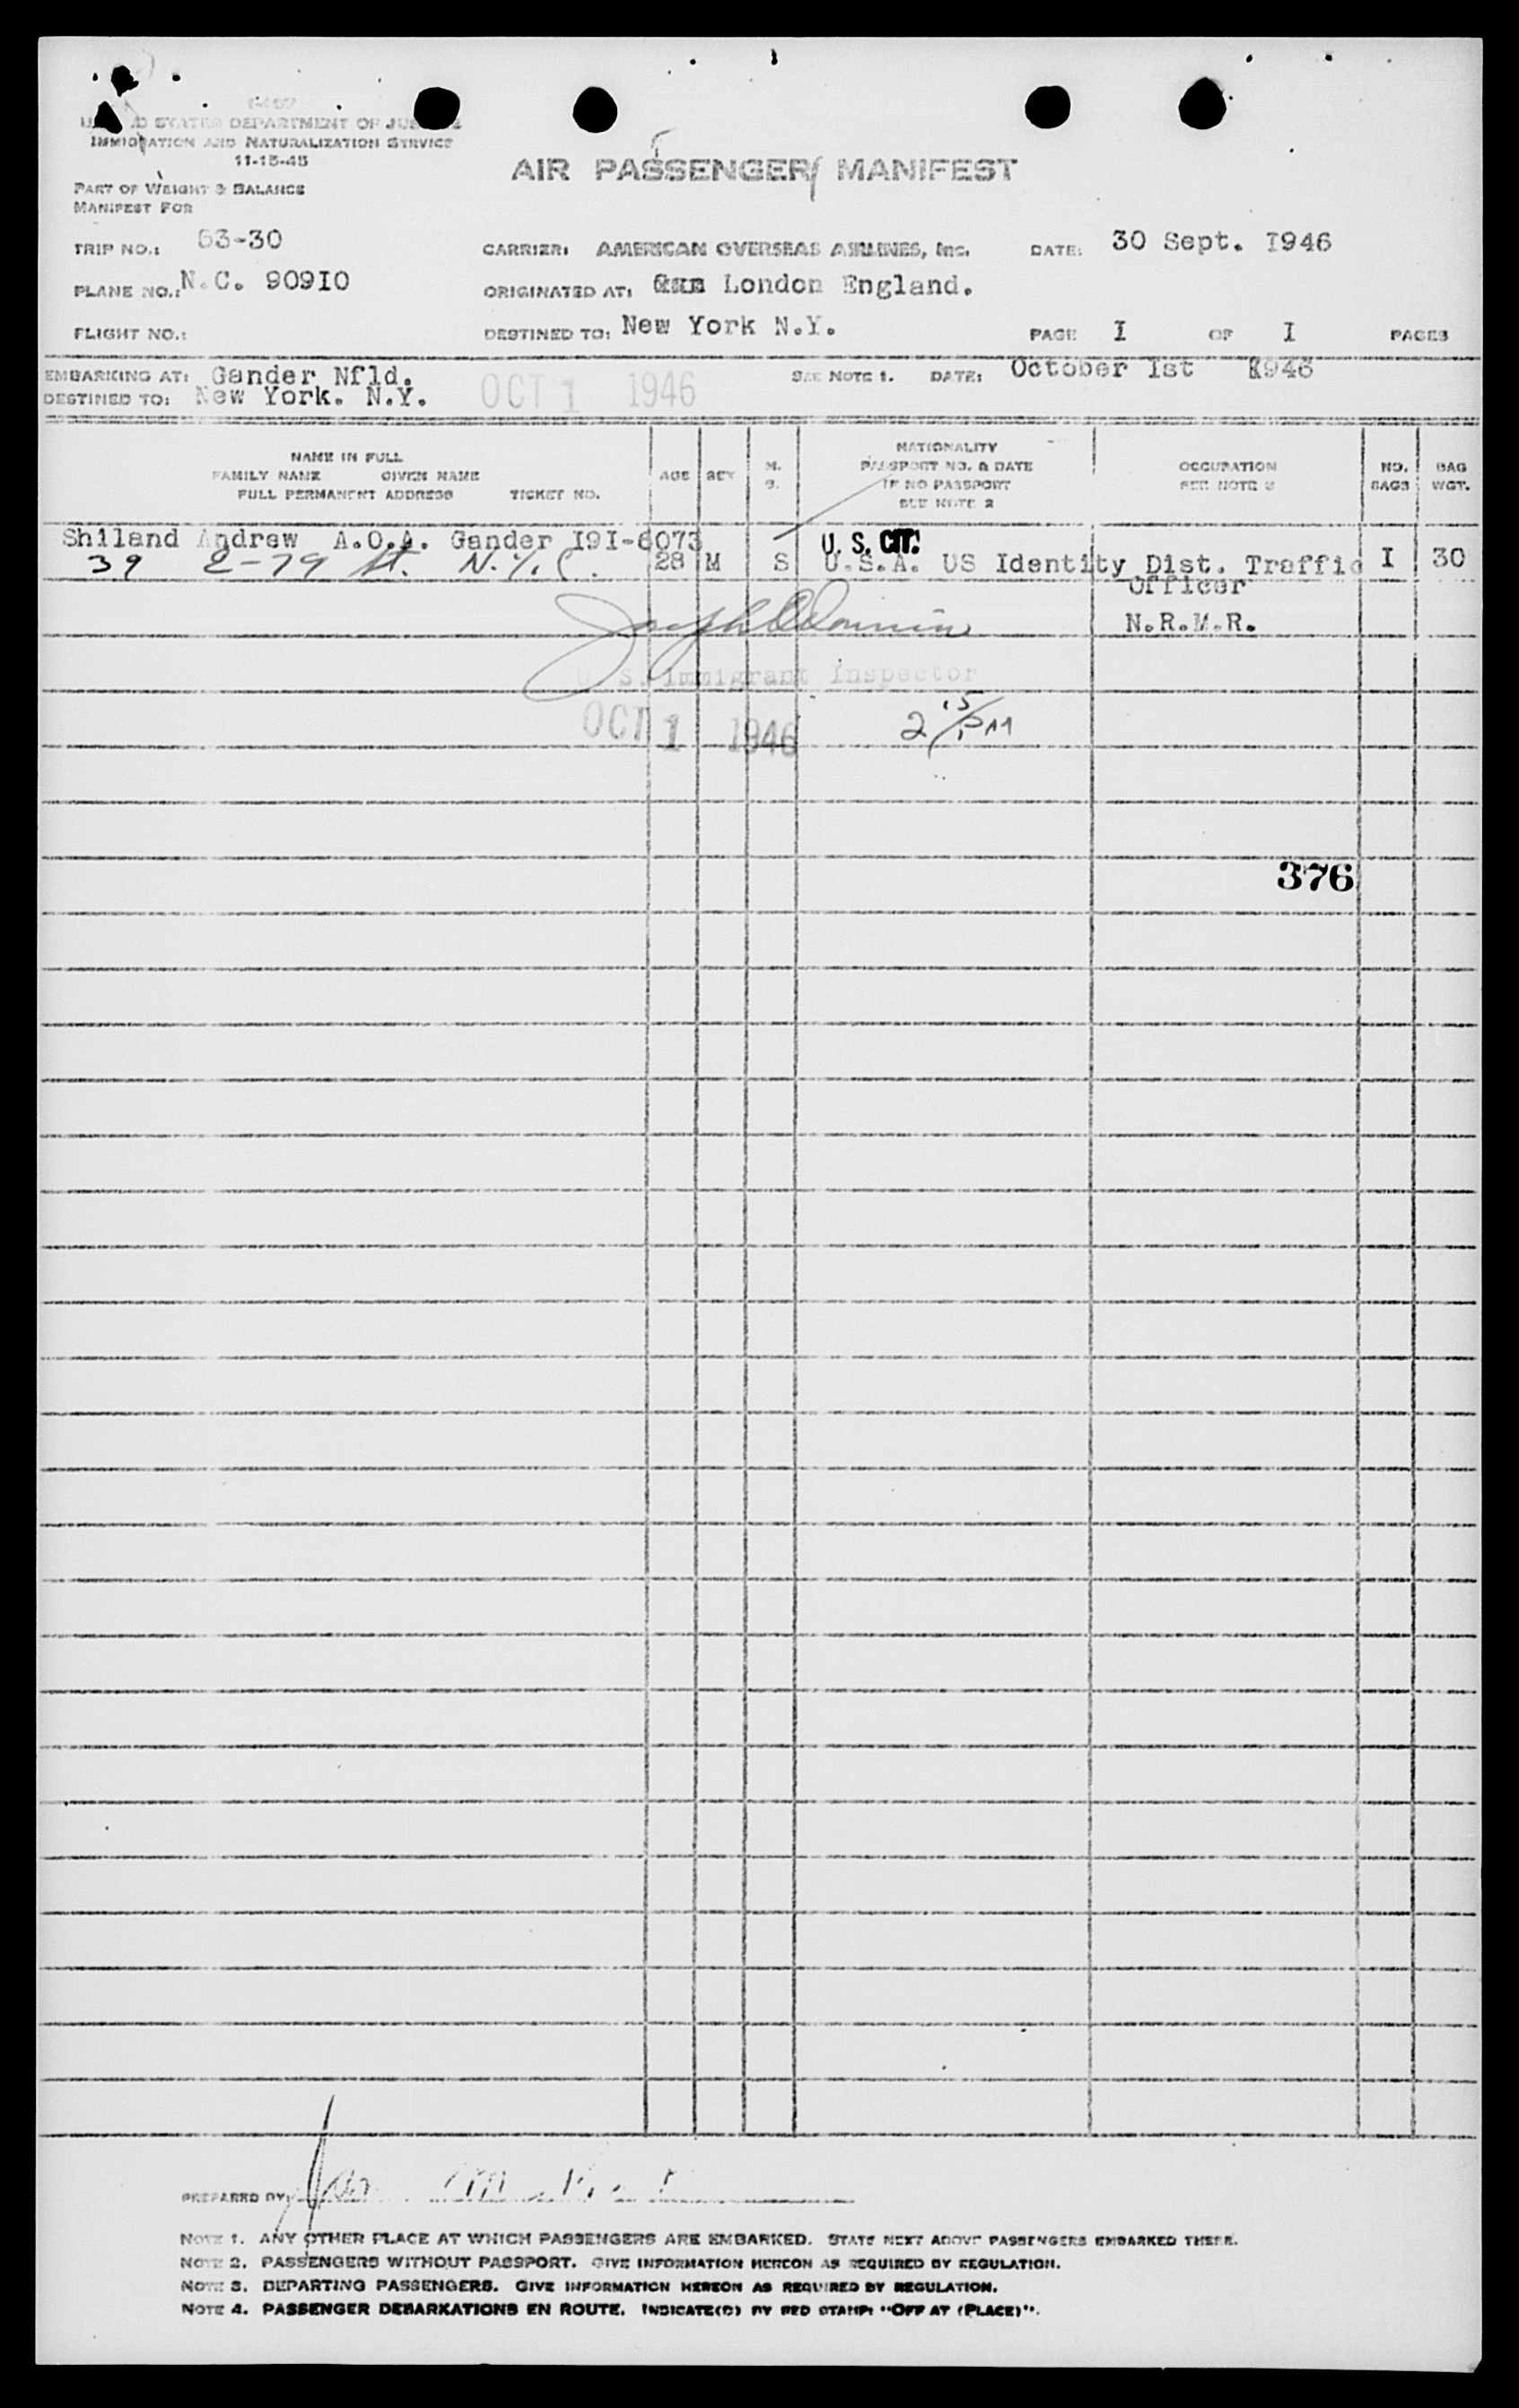 UNITED STATES DEPARTMENT OF JUSTICE
IMMIGRATION AND NATURALIZATION SERVICE
11-15-45
AIR PASSENGER MANIFEST
PART OF WEIGHT & BALANCE
MANIFEST FOR
TRIP NO.: 53-30 CARRIER: AMERICAN OVERSEAS AIRLINES, Inc. DATE: 30 Sept. I946
PLANE NO.: N.C. 909I0 ORIGINATED AT: London England.
FLIGHT NO.: DESTINED TO: New York N.Y. PAGE I OF I PAGES
EMBARKING AT: Gander Nfld. SEE NOTE 1. DATE: October Ist 1946
DESTINED TO: New York. N.Y. OCT 1 1946
NAME IN FULL
FAMILY NAME GIVEN NAME
FULL PERMANENT ADDRESS TICKET NO.
AGE SEX M. S.
NATIONALITY
PASSPORT NO. & DATE
IF NO PASSPORT
SEE NOTE 2
OCCUPATION
SEE NOTE 3
NO. BAGS
BAG WGT.
Shiland Andrew A.O.A. Gander I9I-6073 U. S. CIT.
39 E-79 St. N.Y.C. 28 M S U.S.A. US Identity Dist. Traffic I 30
Officer
N.R.M.R.
U. S. Immigrant Inspector
OCT 1 1946 2 15 PM
376
PREPARED BY:
NOTE 1. ANY OTHER PLACE AT WHICH PASSENGERS ARE EMBARKED. STATE NEXT ABOVE PASSENGERS EMBARKED THERE.
NOTE 2. PASSENGERS WITHOUT PASSPORT. GIVE INFORMATION HEREON AS REQUIRED BY REGULATION.
NOTE 3. DEPARTING PASSENGERS. GIVE INFORMATION HEREON AS REQUIRED BY REGULATION.
NOTE 4. PASSENGER DEBARKATIONS EN ROUTE. INDICATE(D) BY RED STAMP: "OFF AT (PLACE)".